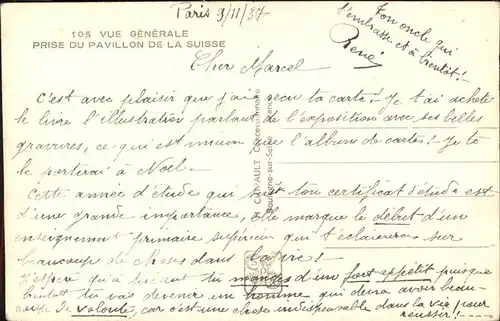 Paris 9/11/37
105 VUE GÉNÉRALE
PRISE DU PAVILLON DE LA SUISSE
Ton oncle qui
t'embrasse et à bientôt!
René
Cher Marcel
C'est avec plaisir que j'ai reçu ta carte! Je t'ai acheté
le livre l'illustration parlant de l'exposition avec ses belles
gravures, ce qui est mieux que l'album de cartes! Je te
le porterai à Noël.
Cette année d'étude qui suit ton certificat d'étude est
d'une grande importance, elle marque le début d'un
enseignement primaire supérieur qui t'éclairera sur
beaucoup de choses dans la vie!
J'espère qu'à présent tu manges d'un fort appétit puisque
bientôt tu vas devenir un homme qui devra avoir beau-
coup de volonté, car c'est une chose indispensable dans la vie pour
réussir!
CHIPAULT Concessionnaire
Boulogne-sur-Seine